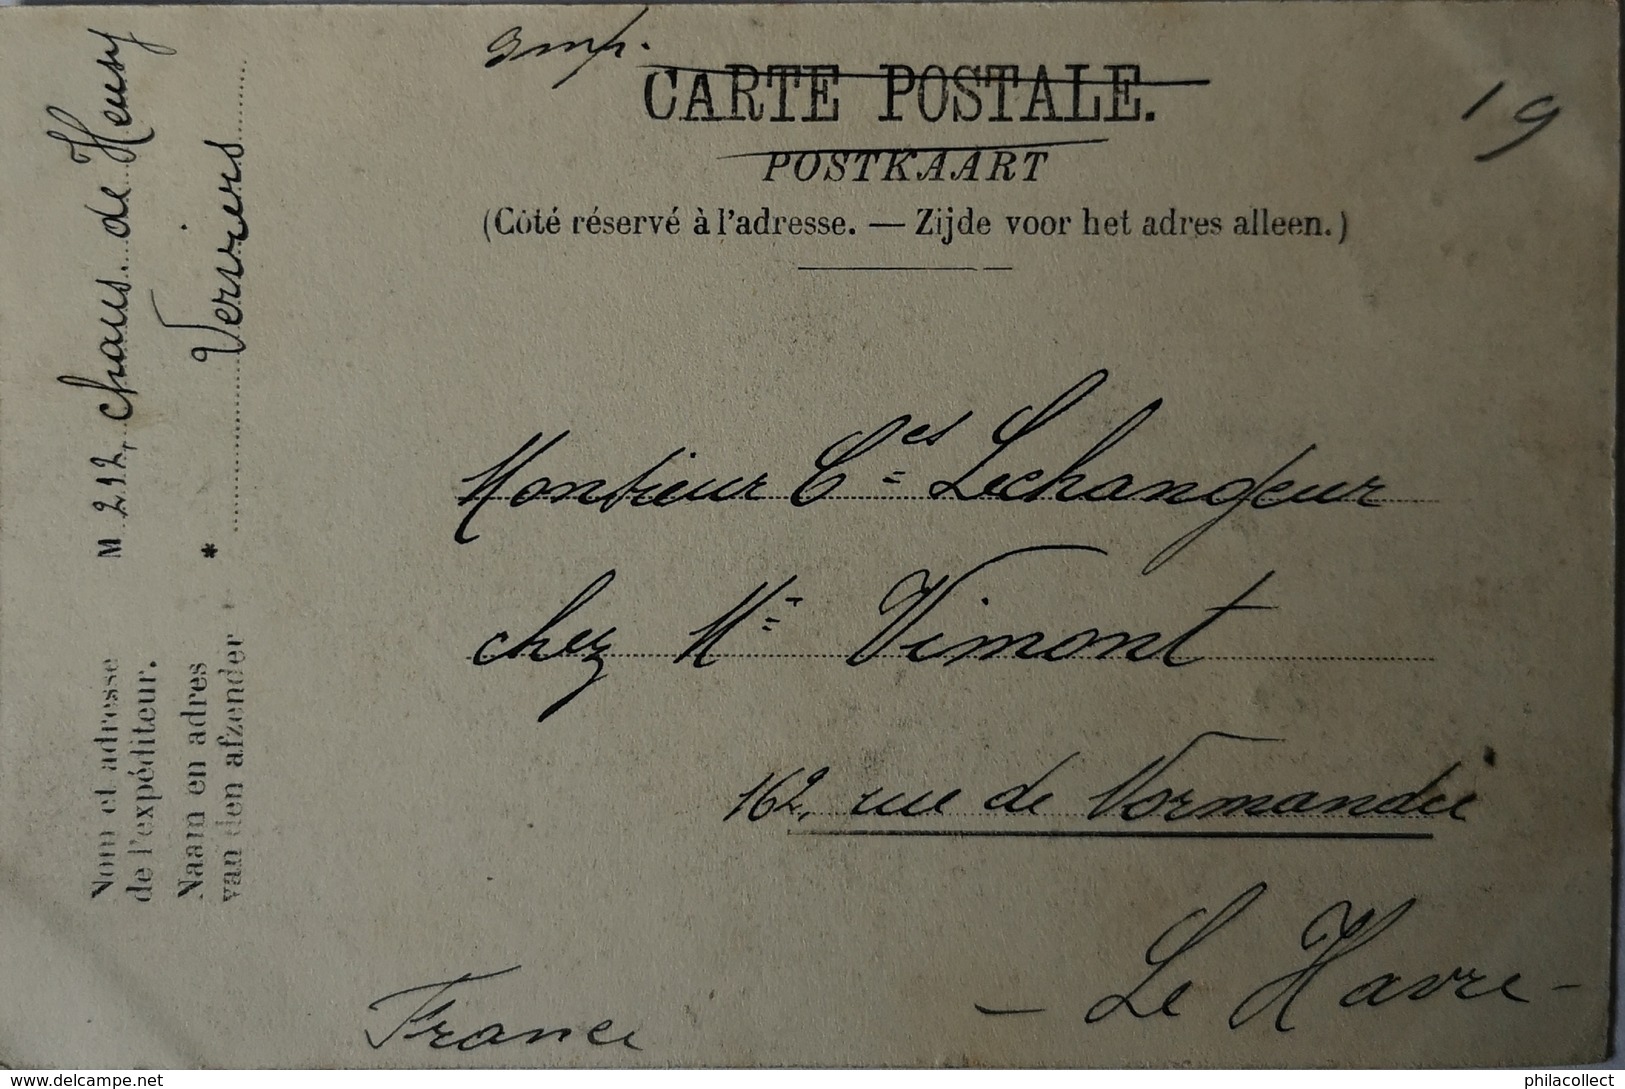 Imp.
CARTE POSTALE.
19
POSTKAART
(Côté réservé à l'adresse. — Zijde voor het adres alleen.)
Monsieur Ces Lechangeur
chez Me Vimont
162, rue de Normandie
- Le Havre -
France
Nom et adresse
de l'expéditeur.
Naam en adres
van den afzender
M 212, chaus. de Heusy
* Verviers
philacollect